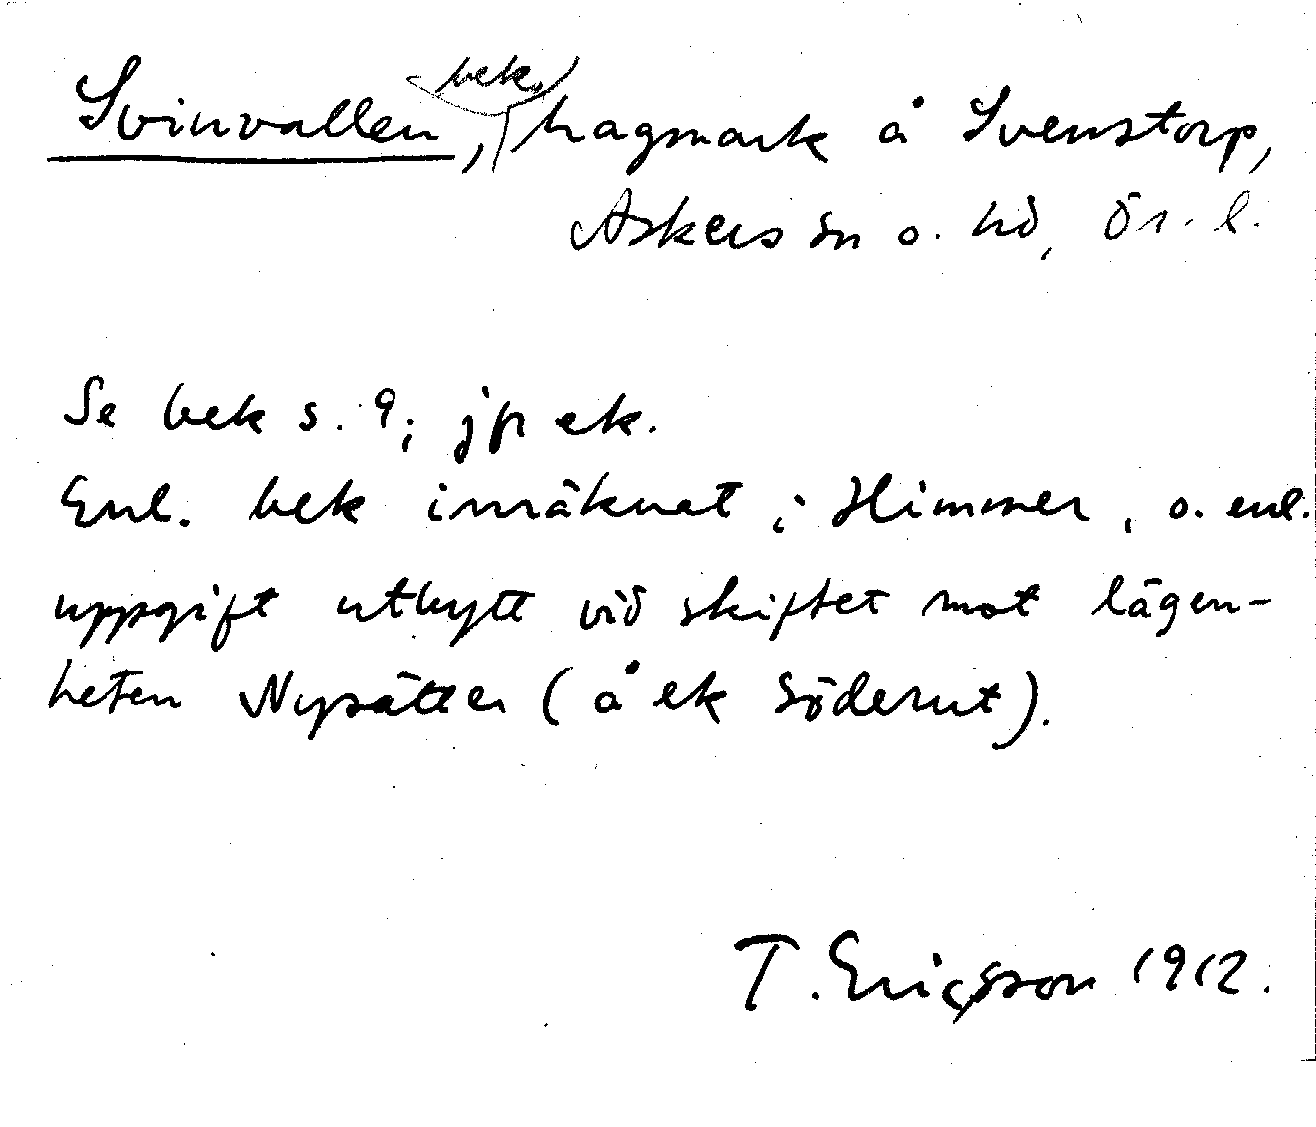 Svinvallen, bek. hagmark å Svenstorp,
Askers sn o. hd, Ör. l.
Se bek s. 9; jfr ek.
Enl. bek inräknat i Himmer, o. enl.
uppgift utbytt vid skiftet mot lägen-
heten Nysätter (å ek Söderut).
T. Ericsson 1912.